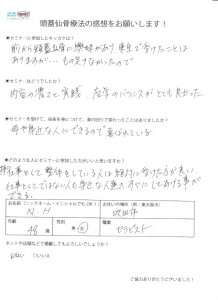 頭蓋仙骨療法の感想をお願いします！
●セミナーに参加したキッカケは？
前から頭蓋仙骨に興味があり 単発で受けたことは
ありますが… もの足りなかったので
●セミナーはどうでしたか？
内容の濃さと実践 座学のバランスがとても良かった。
母や身近な人にできるので喜ばれている
●どのような人にセミナーに参加した方がいいと思いますか？
仕事として整体をしている人は絶対に受けた方が良い
仕事としてではない人も身近な人達へのケアとしてあげる事が
できる。
お名前（ニックネーム・イニシャルでもOK！）
N H
お住いの場所（例：東大阪市）
年齢
48 歳
性別
男・女
職業
セラピスト
ネットや店頭などで掲載してもよろしいでしょうか？
はい ・ いいえ
ご協力ありがとうございました！